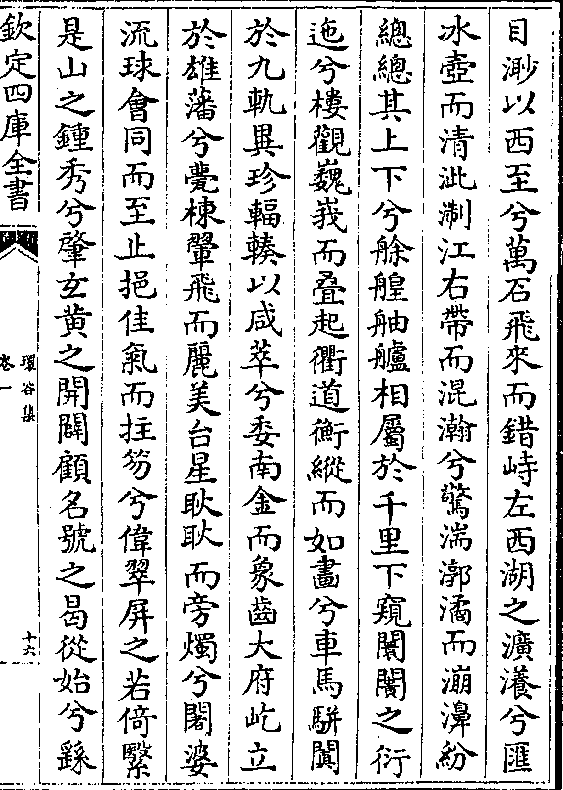 目渺以西至兮萬石飛來而錯峙左西湖之瀇瀁兮匯
氷壺而清泚淛江右帶而混瀚兮驚湍漷潏而漰濞紛
總總其上下兮艅艎舳艫相屬於千里下窺闤闠之衍
迤兮樓觀巍峩而疊起衢道衡縱而如畫兮車馬駢闐
於九軌異珍輻輳以咸萃兮委南金而象齒大府屹立
於雄藩兮甍棟翬飛而麗美台星耿耿而旁燭兮闍婆
流球會同而至止挹佳氣而拄笏兮偉翠屏之若倚繄
是山之鍾秀兮肇玄黄之開闢顧名號之曷從始兮繇
欽定四庫全書
環谷集
卷一
十六